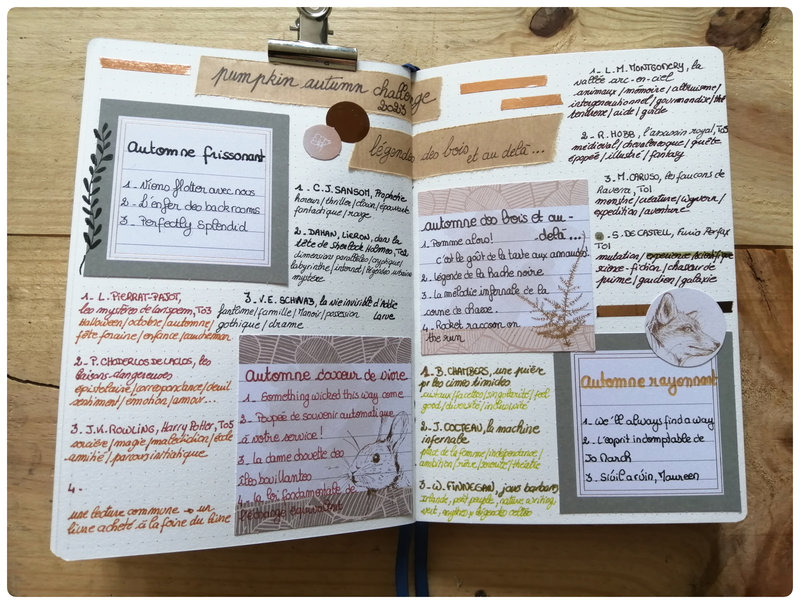 pumpkin autumn challenge
2023
légendes des bois
et au delà...
Automne frissonnant
1 - Viens flotter avec nous
2 - L'enfer des backrooms
3 - Perfectly Splendid
1 - C.J. SANSOM, Prophétie
horreur/thriller/clown/épouvante
fantastique/rouge
2 - DAHAN, LIERON, dans la
tête de Sherlock Holmes, T02
dimensions parallèles/cryptique/
labyrinthe/internet/légendes urbaine
mystère
3 - V.E. SCHWAB, la vie invisible d'Addie
Larue
fantôme/famille/Manoir/possession
gothique/drame
1 - L. PIERRAT-PAJOT,
les mystères de Larispem, T03
Halloween/octobre/automne/
fête foraine/enfance/cauchemar
2 - P. CHODERLOS DE LACLOS, les
liaisons dangereuses
épistolaire/correspondance/deuil
sentiment/émotion/amour...
3 - J.K. ROWLING, Harry Potter, T05
sorcière/magie/malédiction/école
amitié/parcours initiatique
4 -
une lecture commune → un
livre acheté à la foire du livre
Automne douceur de vivre
1 - Something wicked this way come
2 - Poupée de souvenir automatique
à votre service !
3 - la dame chouette des
îles bouillantes
4 - la loi fondamentale de
l'échange équivalent
1 - L.M. MONTGOMERY, la
vallée arc-en-ciel
animaux/mémoire/altruisme/
intergénérationnel/gourmandise/thé
tendresse/aide/guide
2 - R. HOBB, l'assassin royal, T03
médiéval/chevaleresque/quête
épopée/illustré/fantasy
3 - M. CARUSO, les faucons de
Raverra, T01
monstre/créature/wyvern/
expédition/aventure
- S. DE CASTELL,
T01
mutation/expérience scientifique
science-fiction/chasseur de
prime/gardien/galaxie
automne des bois et au-
delà...
1 - Pomme
c'est le goût de la taste aux
2 - légende de la Hache noire
3 - la mélodie infernale de la
corne de chasse
4 - Rocket raccoon on
the run
1 - B. CHAMBERS, une prière
pr les cimes timides
/facettes/singularité/feel
good/diversité/inclusivité
2 - J. COCTEAU, la machine
infernale
place de la femme/indépendance/
ambition/théâtre
3 - W. FINNEGAN, jours barbares
Irlande, petit peuple, nature writing
vert, mythes & légendes celtes
Automne rayonnant
1 - we'll always find a way
2 - L'esprit indomptable de
Jo March
3 - Siúil a rúin, Maureen